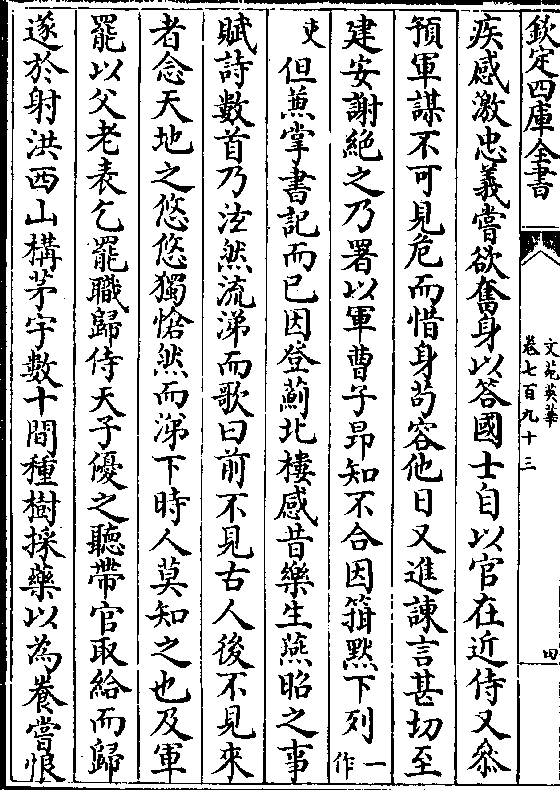 欽定四庫全書
文苑英華
卷七百九十三
四
疾感激忠義嘗欲奮身以答國士自以官在近侍又叅
預軍謀不可見危而惜身苟容他日又進諫言甚切至
建安謝絶之乃署以軍曹子昻知不合因箝黙下列一作
吏但蒹掌書記而已因登薊北樓感昔樂生燕昭之事
賦詩數首乃泫然流涕而歌曰前不見古人後不見來
者念天地之悠悠獨愴然而涕下時人莫知之也及軍
罷以父老表乞罷職歸侍天子優之聽帶官取給而歸
遂於射洪西山構茅宇數十間種樹採藥以為養嘗恨